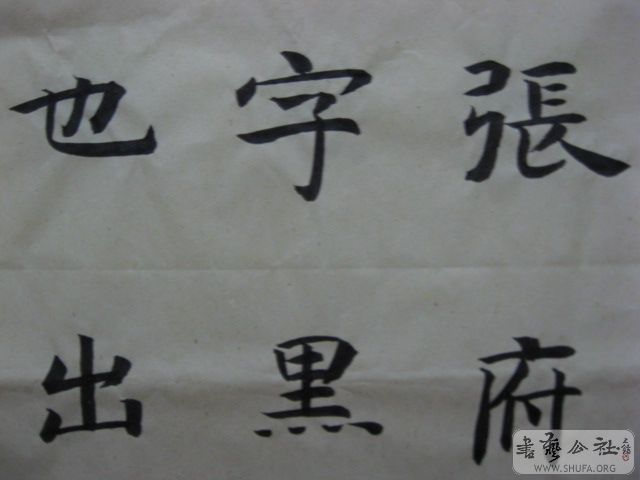 張府
字黑
也出
書藝公社
WWW.SHUFA.ORG